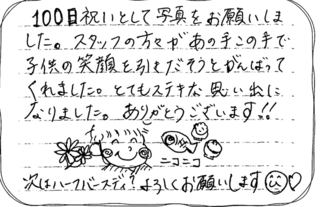 100日祝いとして写真をお願いしま
した。スタッフの方々があの手この手で
子供の笑顔を引きだそうとがんばって
くれました。とてもステキな思い出に
なりました。ありがとうございます!!
ニコニコ
次はハーフバースディ?よろしくお願いします